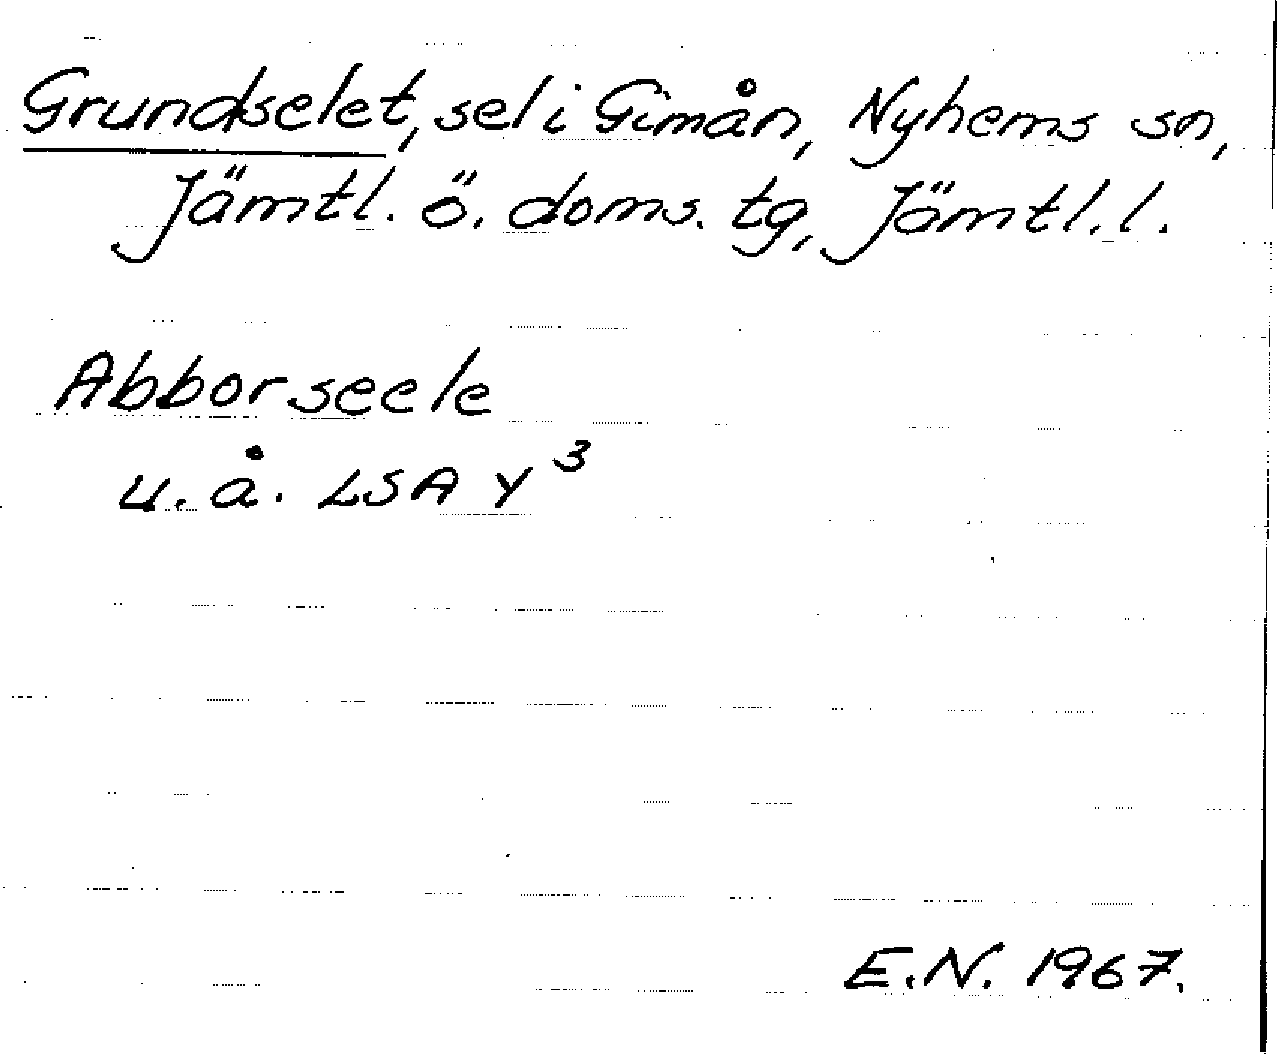 Grundselet, sel i Gimån, Nyhems sn,
Jämtl. ö. doms. tg, Jämtl. l.
Abborseele
u. å. LSA Y³
E.N. 1967.